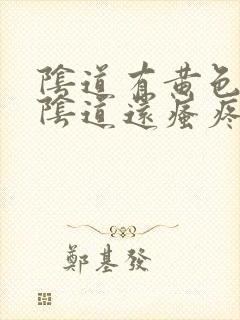 陰道有黃色
陰道還瘙疼
鄭基發